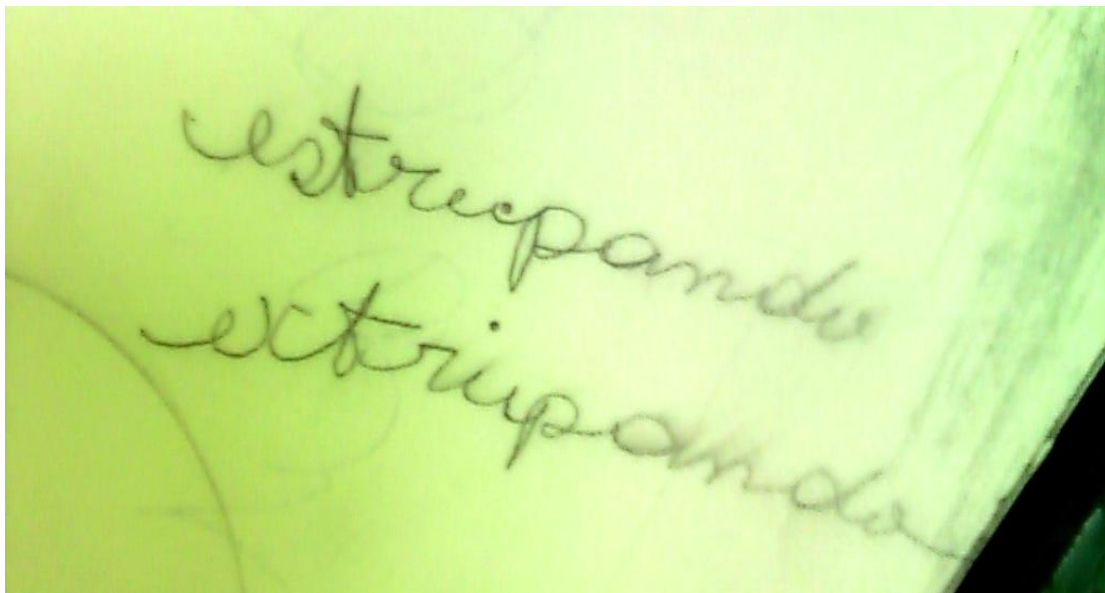 estrupando
extripando